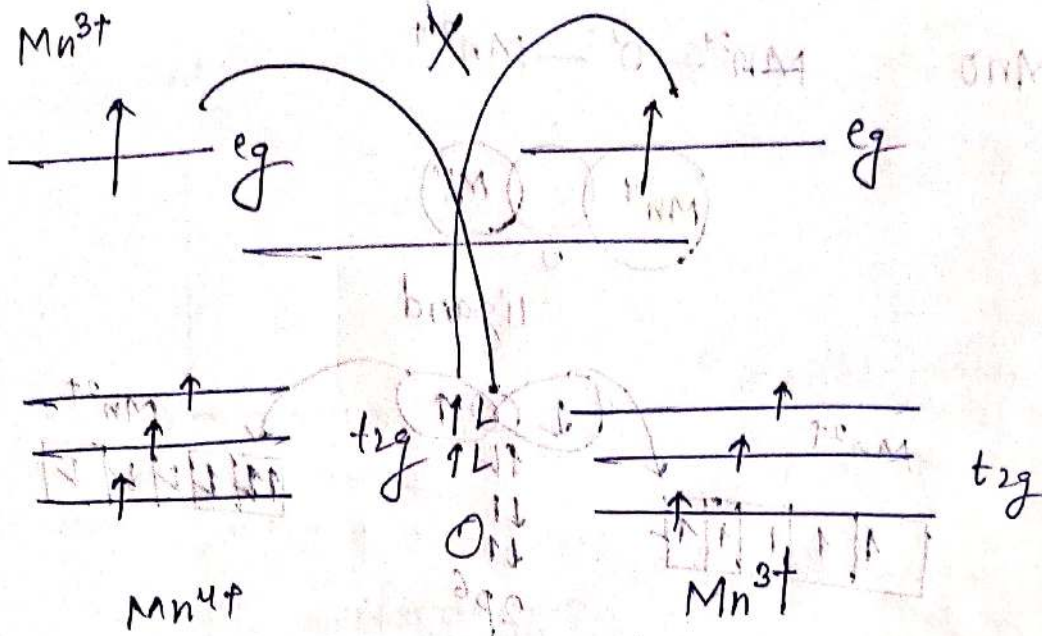 Mn³⁺
X
eg
eg
t₂g
O
t₂g
Mn⁴⁺
Mn³⁺